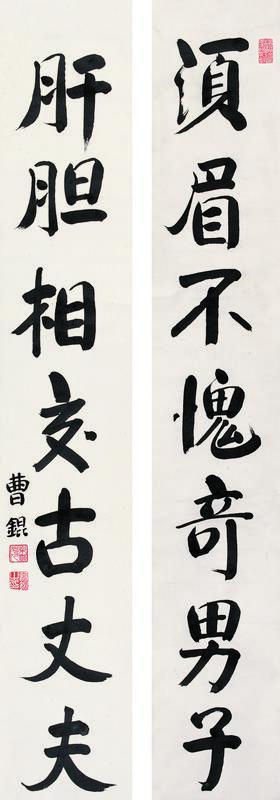 須眉不愧奇男子
肝胆相交古丈夫
曹錕